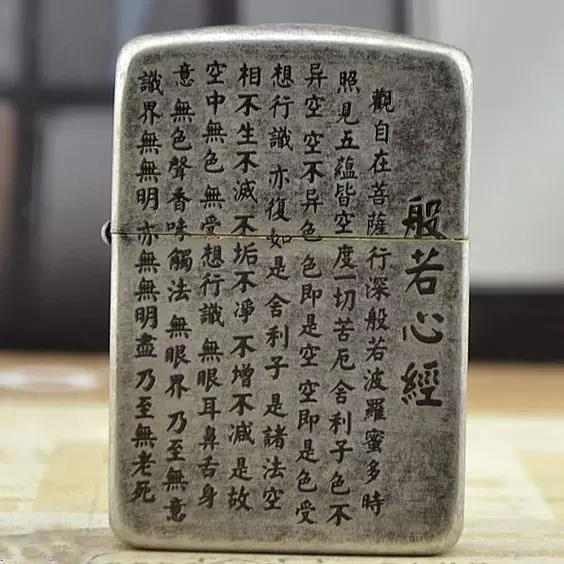 般若心經
觀自在菩薩行深般若波羅蜜多時
照見五蘊皆空度一切苦厄舍利子色不
异空空不异色色即是空空即是色受
想行識亦復如是舍利子是諸法空
相不生不滅不垢不淨不增不減是故
空中無色無受想行識無眼耳鼻舌身
意無色聲香味觸法無眼界乃至無意
識界無無明亦無無明盡乃至無老死